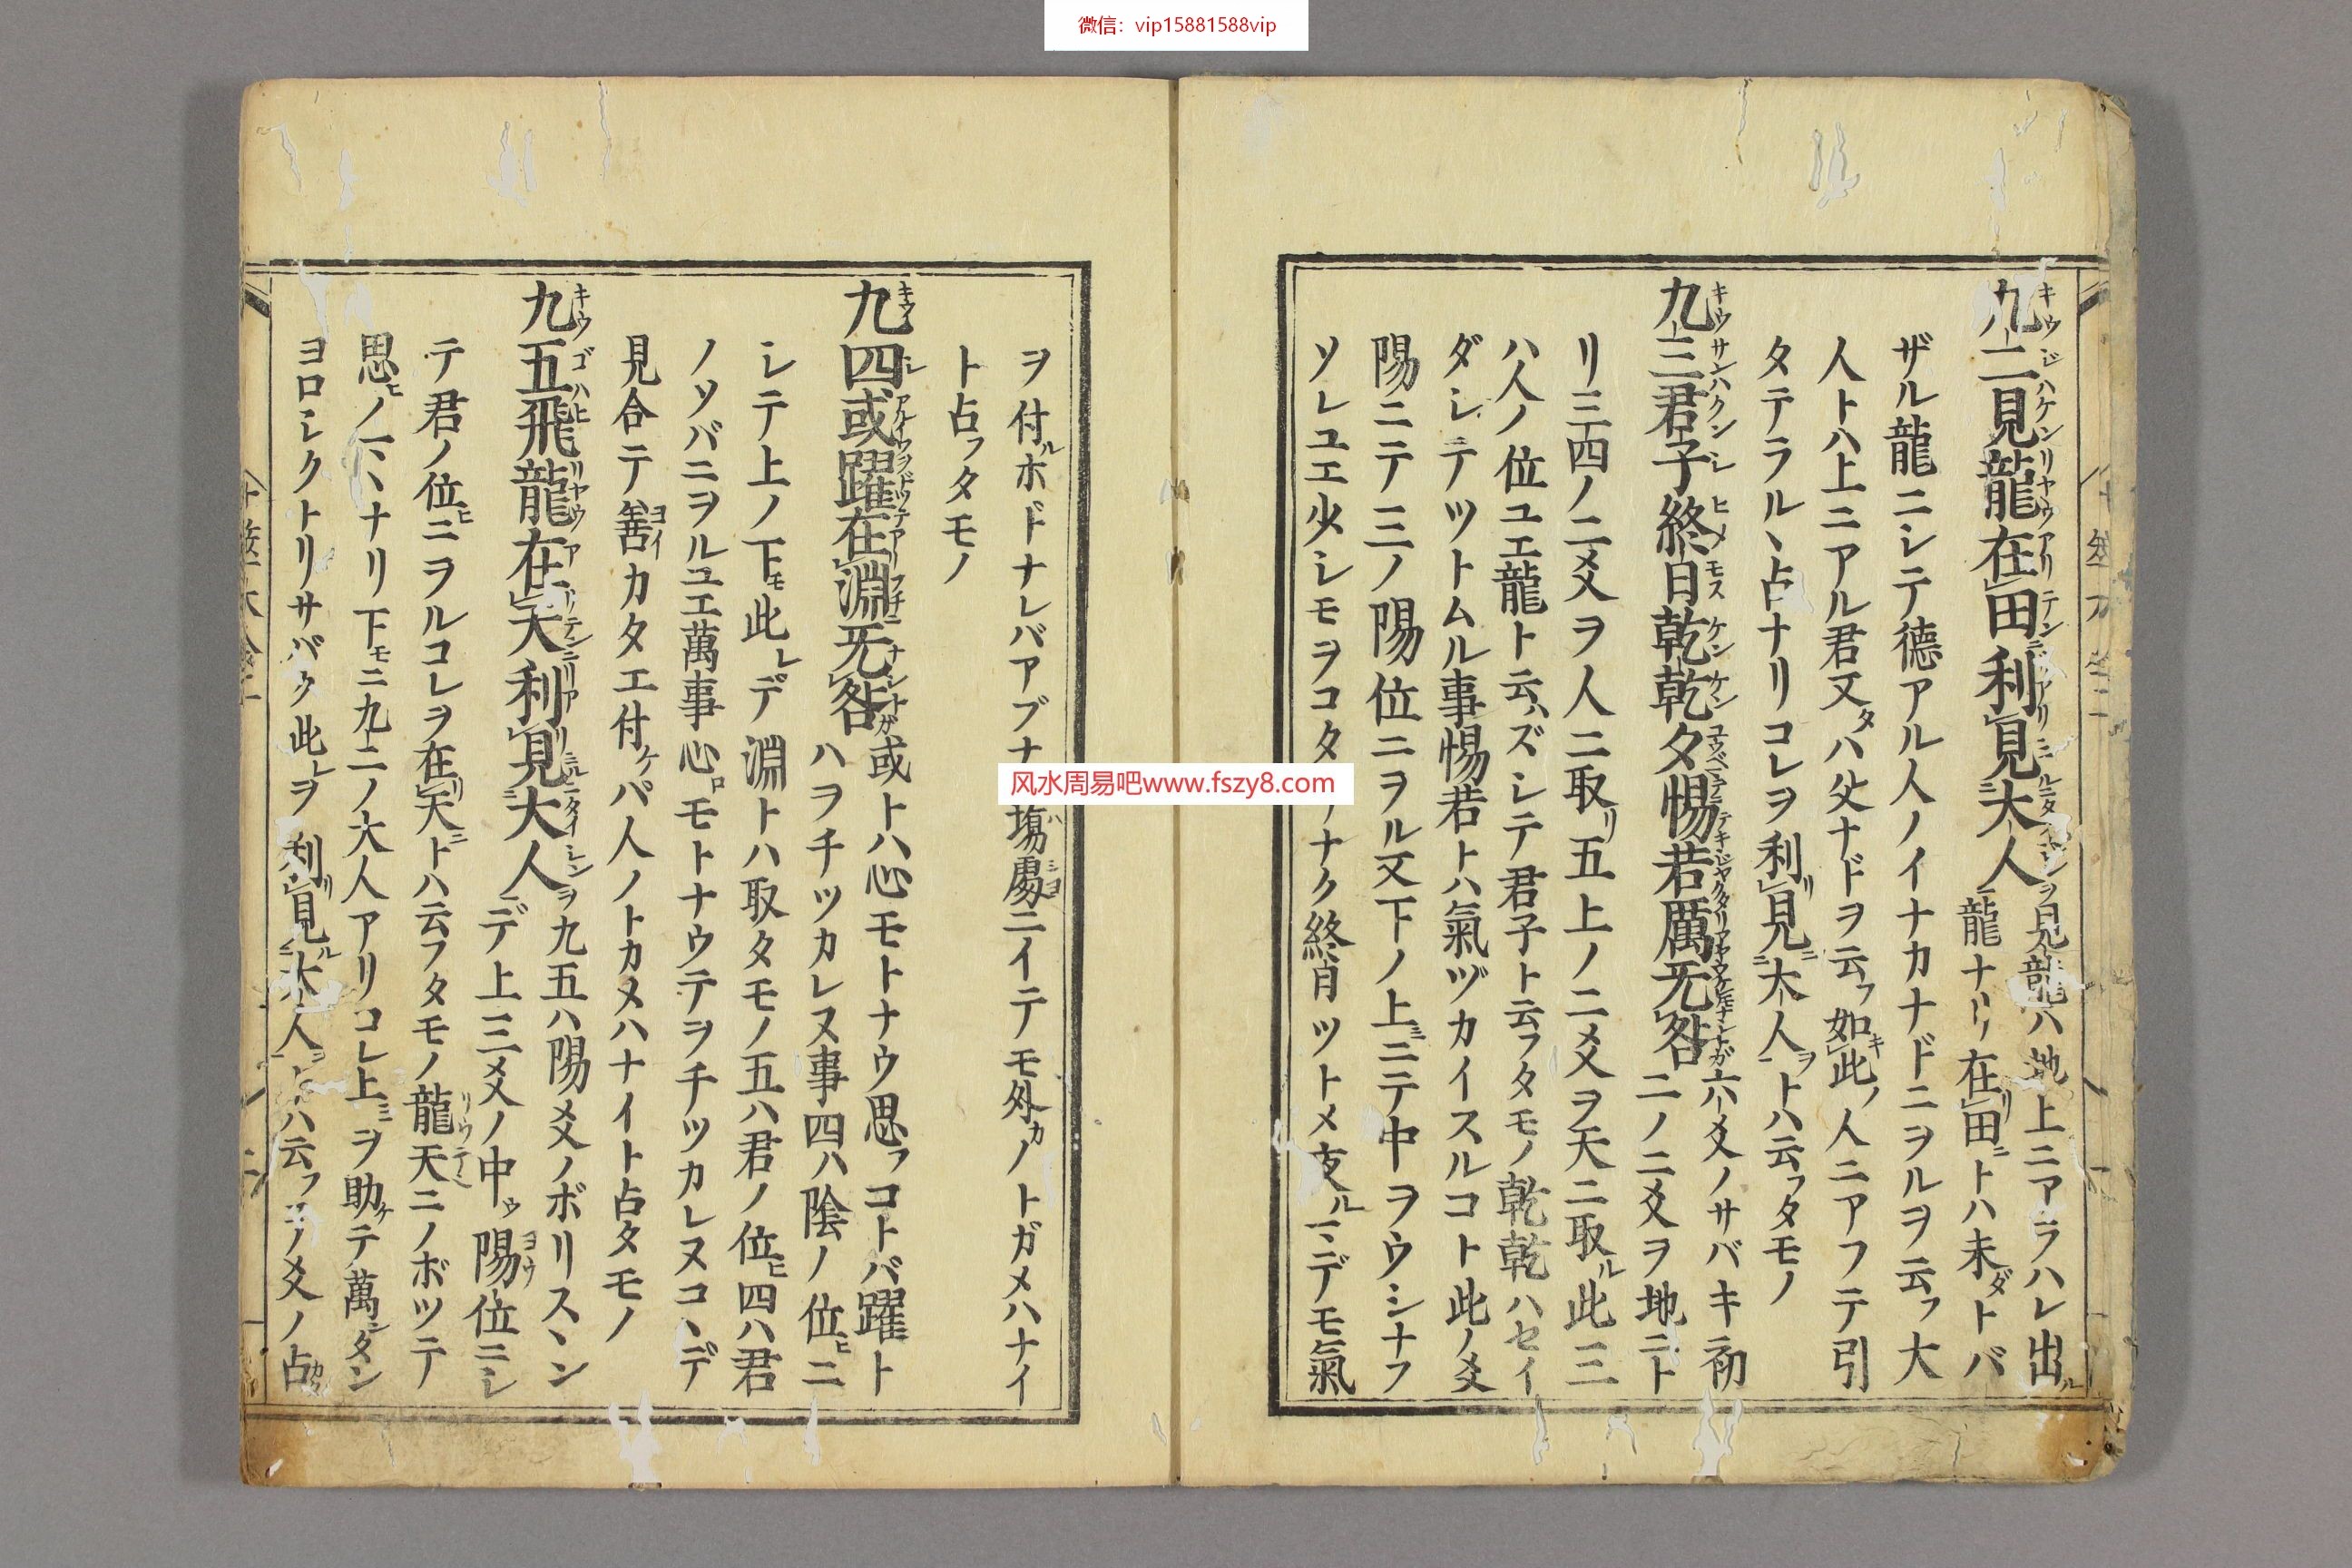 微信：vip15881588vip
九二見龍在田利見大人
見龍ハ地上ニアラハレ出ル
龍ナリ在リ田ニトハ未ダトバ
ザル龍ニシテ德アル人ノイナカナドニヲルヲ云フ大
人トハ上ニアル君又タハ父ナドヲ云フ如キ此ノ人ニアフテ引
タテラルヽ占ナリコレヲ利リ見ニ大人ヲトハ云フタモノ
九三君子終日乾乾夕惕若厲无咎
六爻ノサバキ初
二ノ二爻ヲ地ニト
リ三四ノ二爻ヲ人ニ取リ五上ノ二爻ヲ天ニ取ル此三
ハ人ノ位ユエ龍ト云ハズシテ君子ト云フタモノ乾乾ハセイ
ダシテツトムル事惕若トハ氣ヅカイスルコト此ノ爻
陽ニテ三ノ陽位ニヲル又下ノ上ミニテ中ヲウシナフ
ソレユエ少シモヲコタリナク終日ツトメ支ルマデモ氣
ヲ付ルホドナレバアブナ
塲處ニイテモ外カノトガメハナイ
ト占フタモノ
九四或躍在淵无咎
或トハ心モトナウ思フコトバ躍ト
ハヲチツカレヌ事四ハ陰ノ位ヒニ
シテ上ノ下モ此レデ淵トハ取タモノ五ハ君ノ位ヒ四ハ君
ノソバニヲルユエ萬事心ロモトナウテヲチツカレヌコヽデ
見合テ善イカタエ付ケバ人ノトカメハナイト占タモノ
九五飛龍在天利見大人
九五ハ陽爻ノボリスヽン
デ上三爻ノ中ウ陽位ニシ
テ君ノ位ヒニヲルコレヲ在リ天ニトハ云フタモノ龍天ニノボツテ
思ヒノマヽナリ下モニ九二ノ大人アリコレ上ミヲ助ケテ萬タン
ヨロシクトリサバク此レヲ利リ見ル大人ヲトハ云フコノ爻ノ占
风水周易吧www.fszy8.com